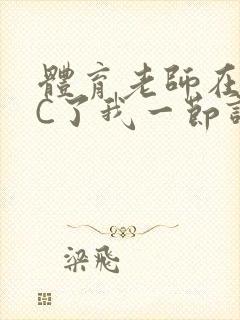 體育老師在
C了我一節
梁飛